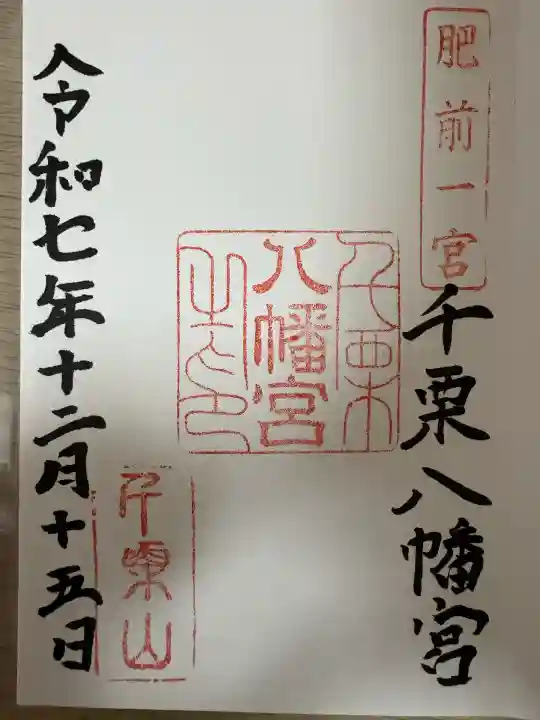 肥前一宮
千栗八幡宮
千栗
八幡宮
之印
千栗山
令和七年十二月十五日